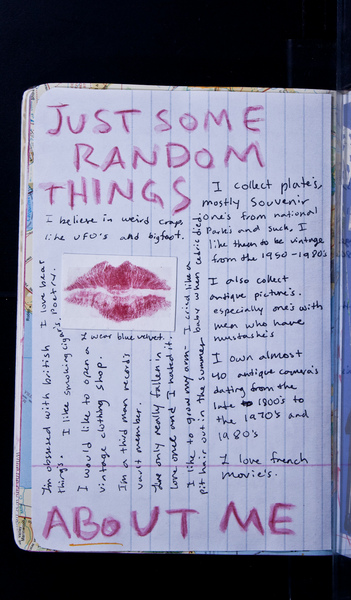 JUST SOME
RANDOM
THINGS
I believe in weird crap
like UFO's and bigfoot.
I love
poetry.
I'm obsessed with british
things.
I like smoking cigar's.
I would like to open a
vintage clothing shop.
I wear blue velvet.
I'm a third man record's
vault member.
I've only really fallen in
love once and I hated it.
I like to grow my arm-
pit hair out in the summer
I cried like a
baby when cedric died
I collect plate's,
mostly Souvenir
one's from national
Park's and suck, I
like them to be vintage
from the 1950-1980's
I also collect
antique picture's.
especially one's with
men who have
mustache's
I own almost
40 antique camera's
dating from the
late 1800's to
the 1970's and
1980's
I love french
movie's.
ABOUT ME